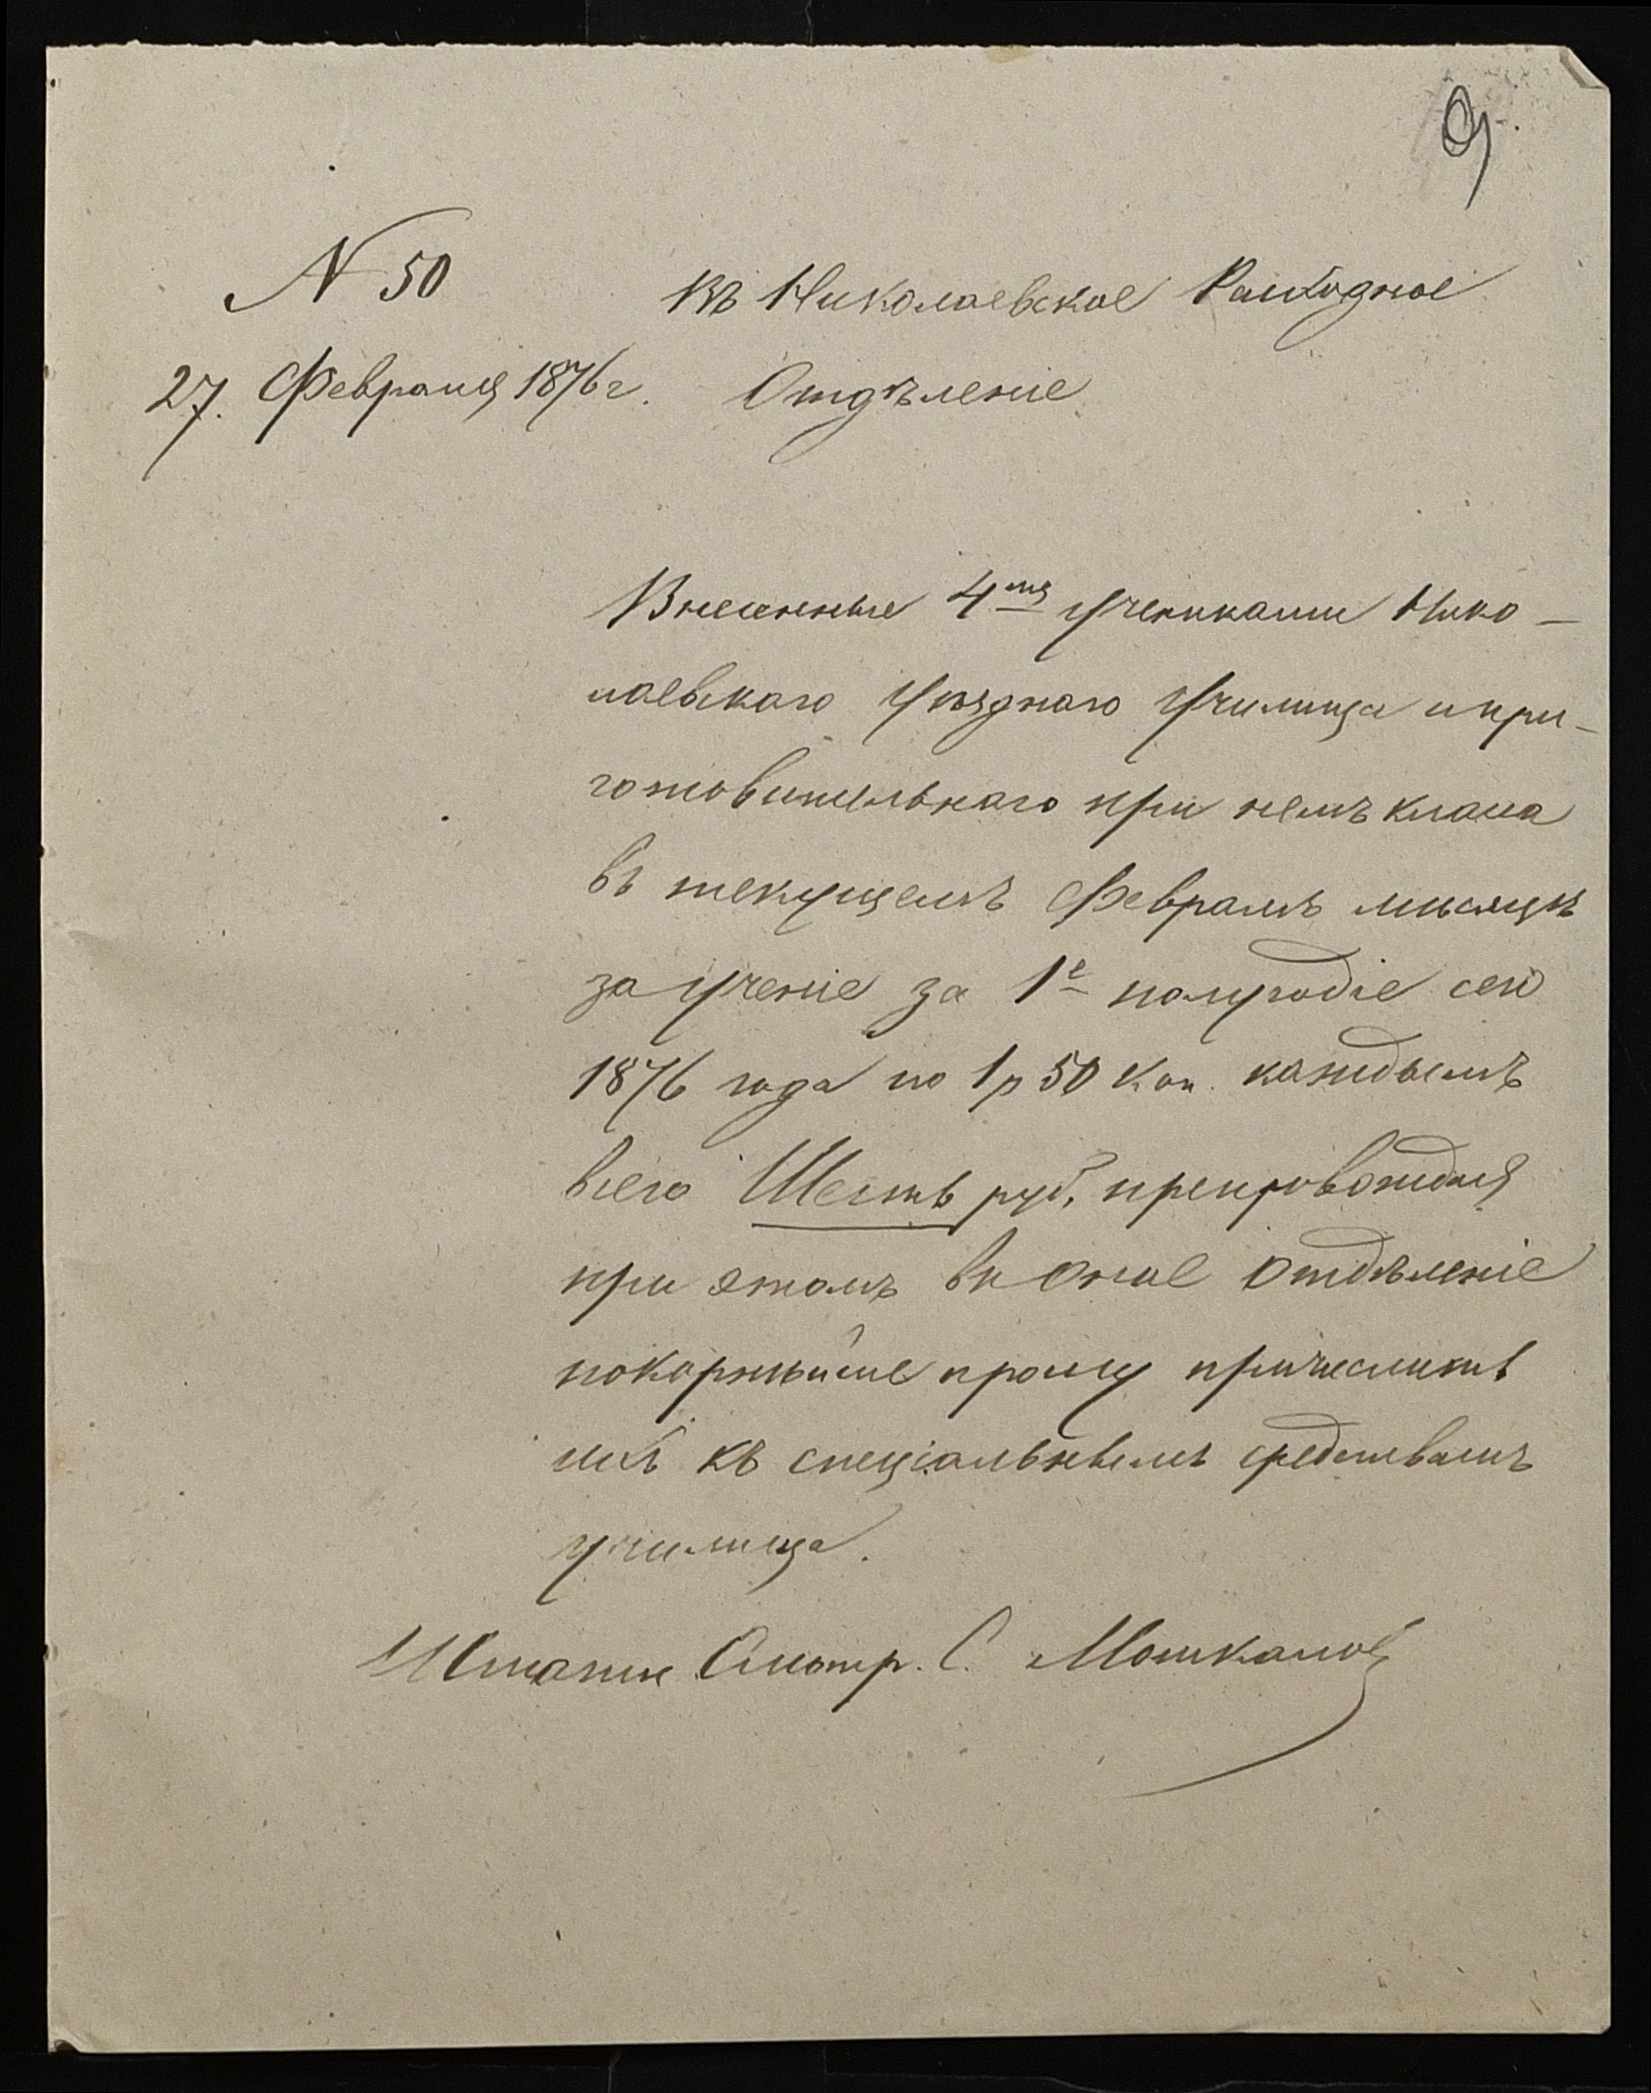 9.
N 50
Въ Николаевское Расходное
27. Февраля 1876 г. Отдѣленіе
Внесенные 4мя учениками Нико-
лаевскаго Уѣзднаго Училища и при-
готовительнаго при немъ класса
въ текущемъ Февралѣ мѣсяцѣ
за ученіе за 1е полугодіе сего
1876 года по 1 р 50 коп. каждымъ
всего Шесть руб. препровождая
при этомъ въ оное Отдѣленіе
покорнѣйше прошу причислить
ихъ къ спеціальнымъ средствамъ
училища.
Штатн. Смотр. С. Мошкалов